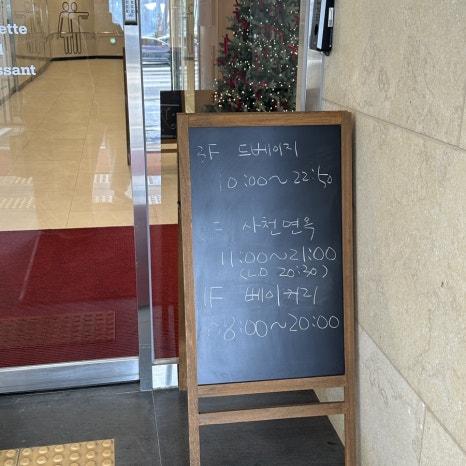 ette
ssant
3F 드베이지
10:00~22:50
사천면옥
11:00~21:00
(L.O 20:30)
1F 베이커리
8:00~20:00